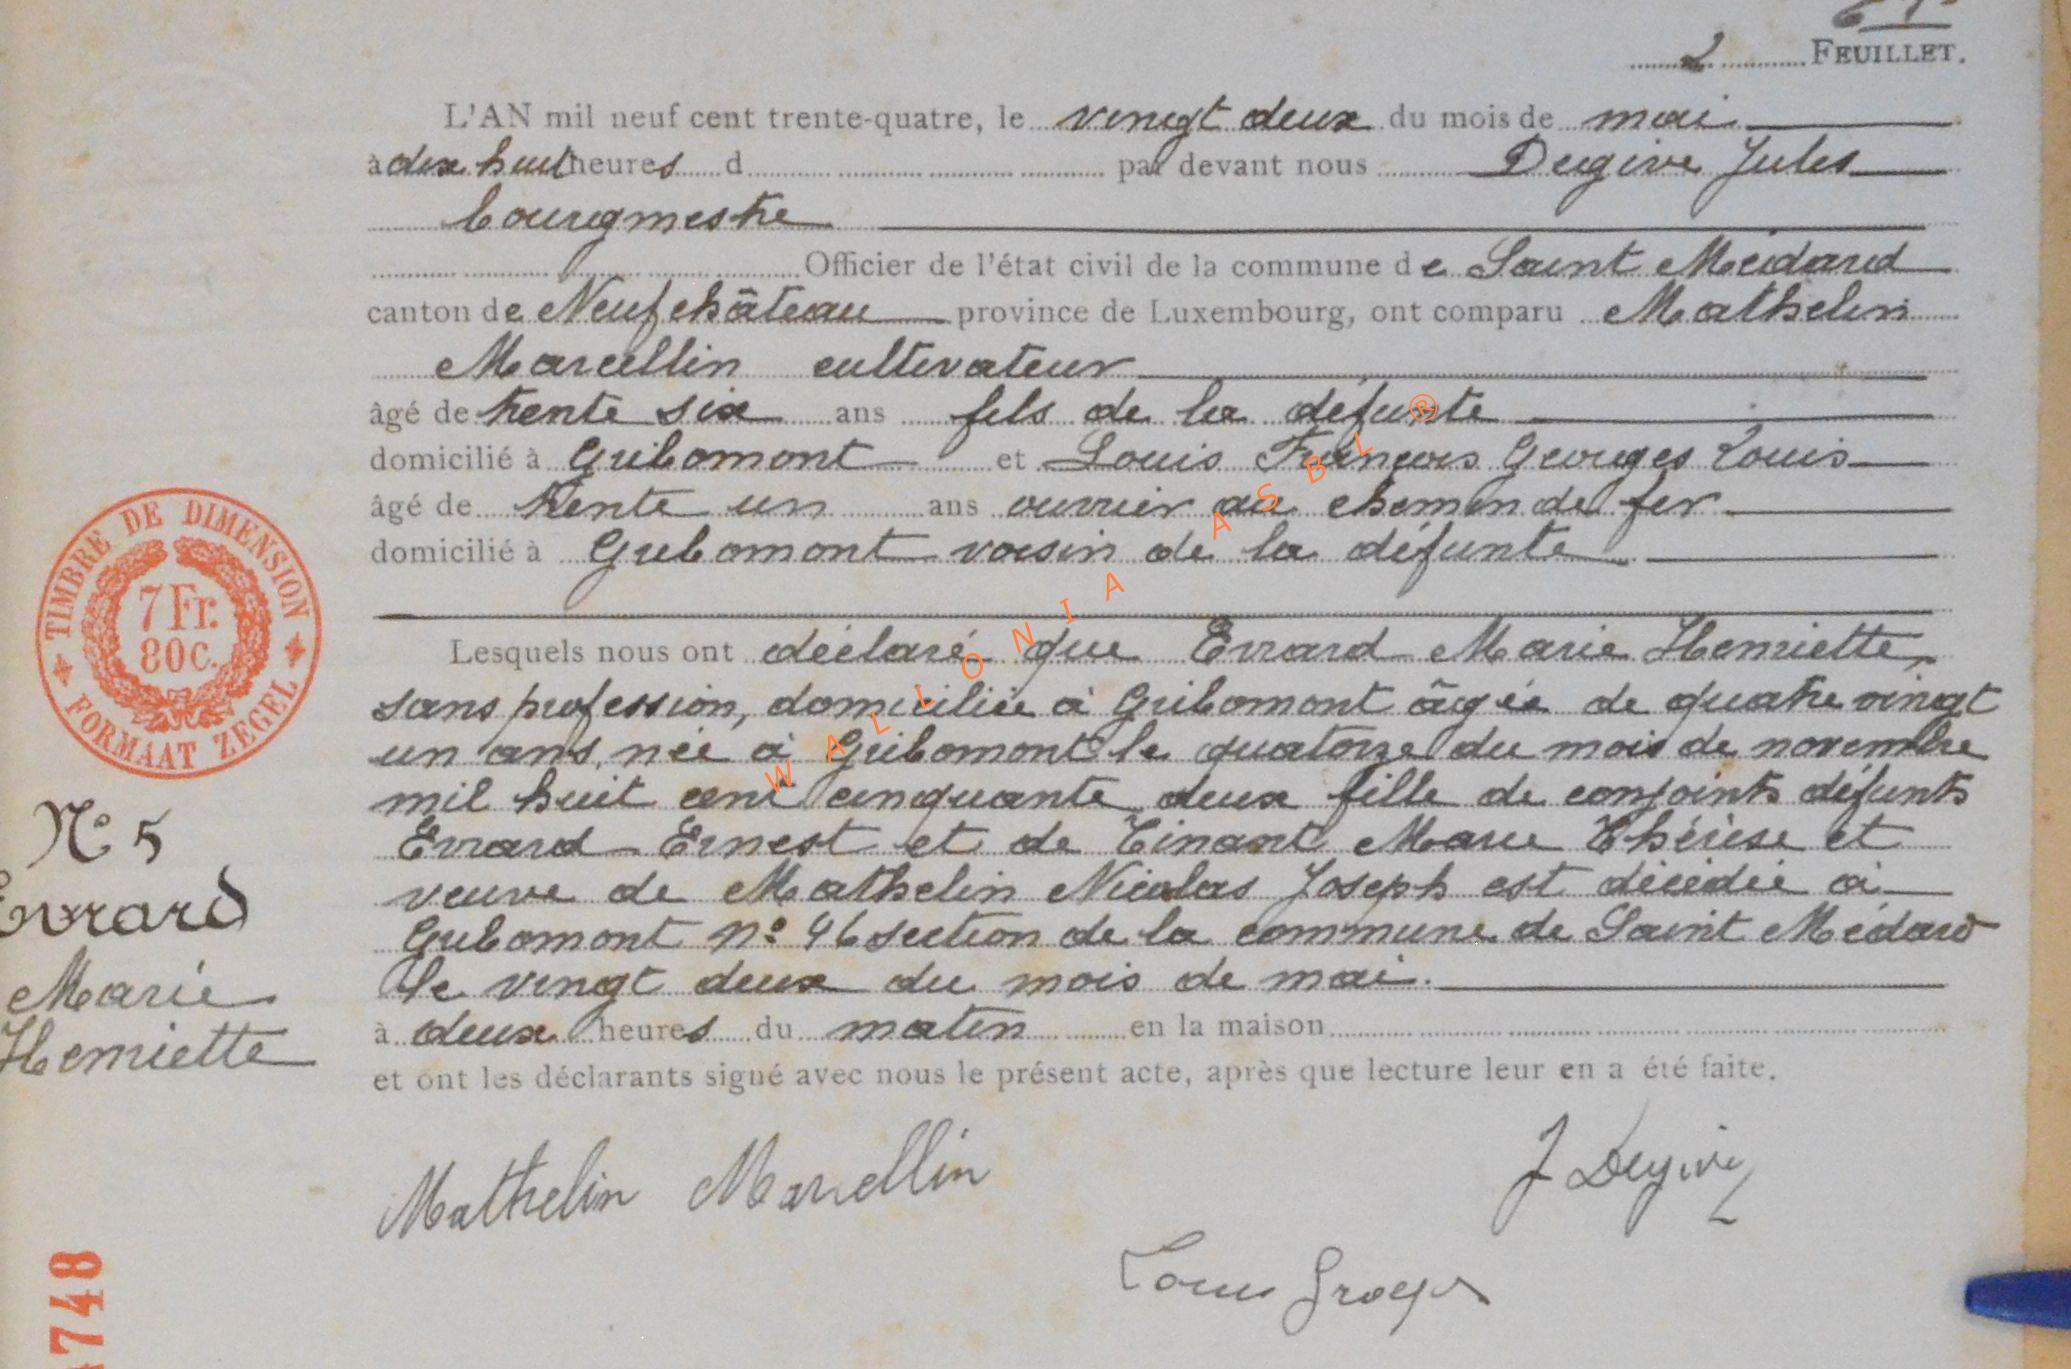 2 FEUILLET.
L'AN mil neuf cent trente-quatre, le vingt deux du mois de mai
à dix huit heures d par devant nous Degive Jules
bourgmestre
Officier de l'état civil de la commune de Saint Médard
canton de Neufchâteau province de Luxembourg, ont comparu Mathelin
Marcellin cultivateur
âgé de trente six ans fils de la défunte
domicilié à Gribomont et Louis François Georges Louis
âgé de trente un ans ouvrier au chemin de fer
domicilié à Gribomont voisin de la défunte
Lesquels nous ont déclaré que Evrard Marie Henriette,
sans profession, domiciliée à Gribomont âgée de quatre vingt
un ans, née à Gribomont le quatorze du mois de novembre
mil huit cent cinquante deux fille de conjoints défunts
Evrard Ernest et de Tinant Marie Thérèse et
veuve de Mathelin Nicolas Joseph est décédée à
Gribomont n° 46 section de la commune de Saint Médard
le vingt deux du mois de mai.
à deux heures du matin en la maison
et ont les déclarants signé avec nous le présent acte, après que lecture leur en a été faite.
Mathelin Marcellin
J Degive
Louis Georges
TIMBRE DE DIMENSION
7 Fr.
80 C.
FORMAAT ZEGEL
N° 5
Evrard
Marie
Henriette
748
WALLONIA ASBL ®